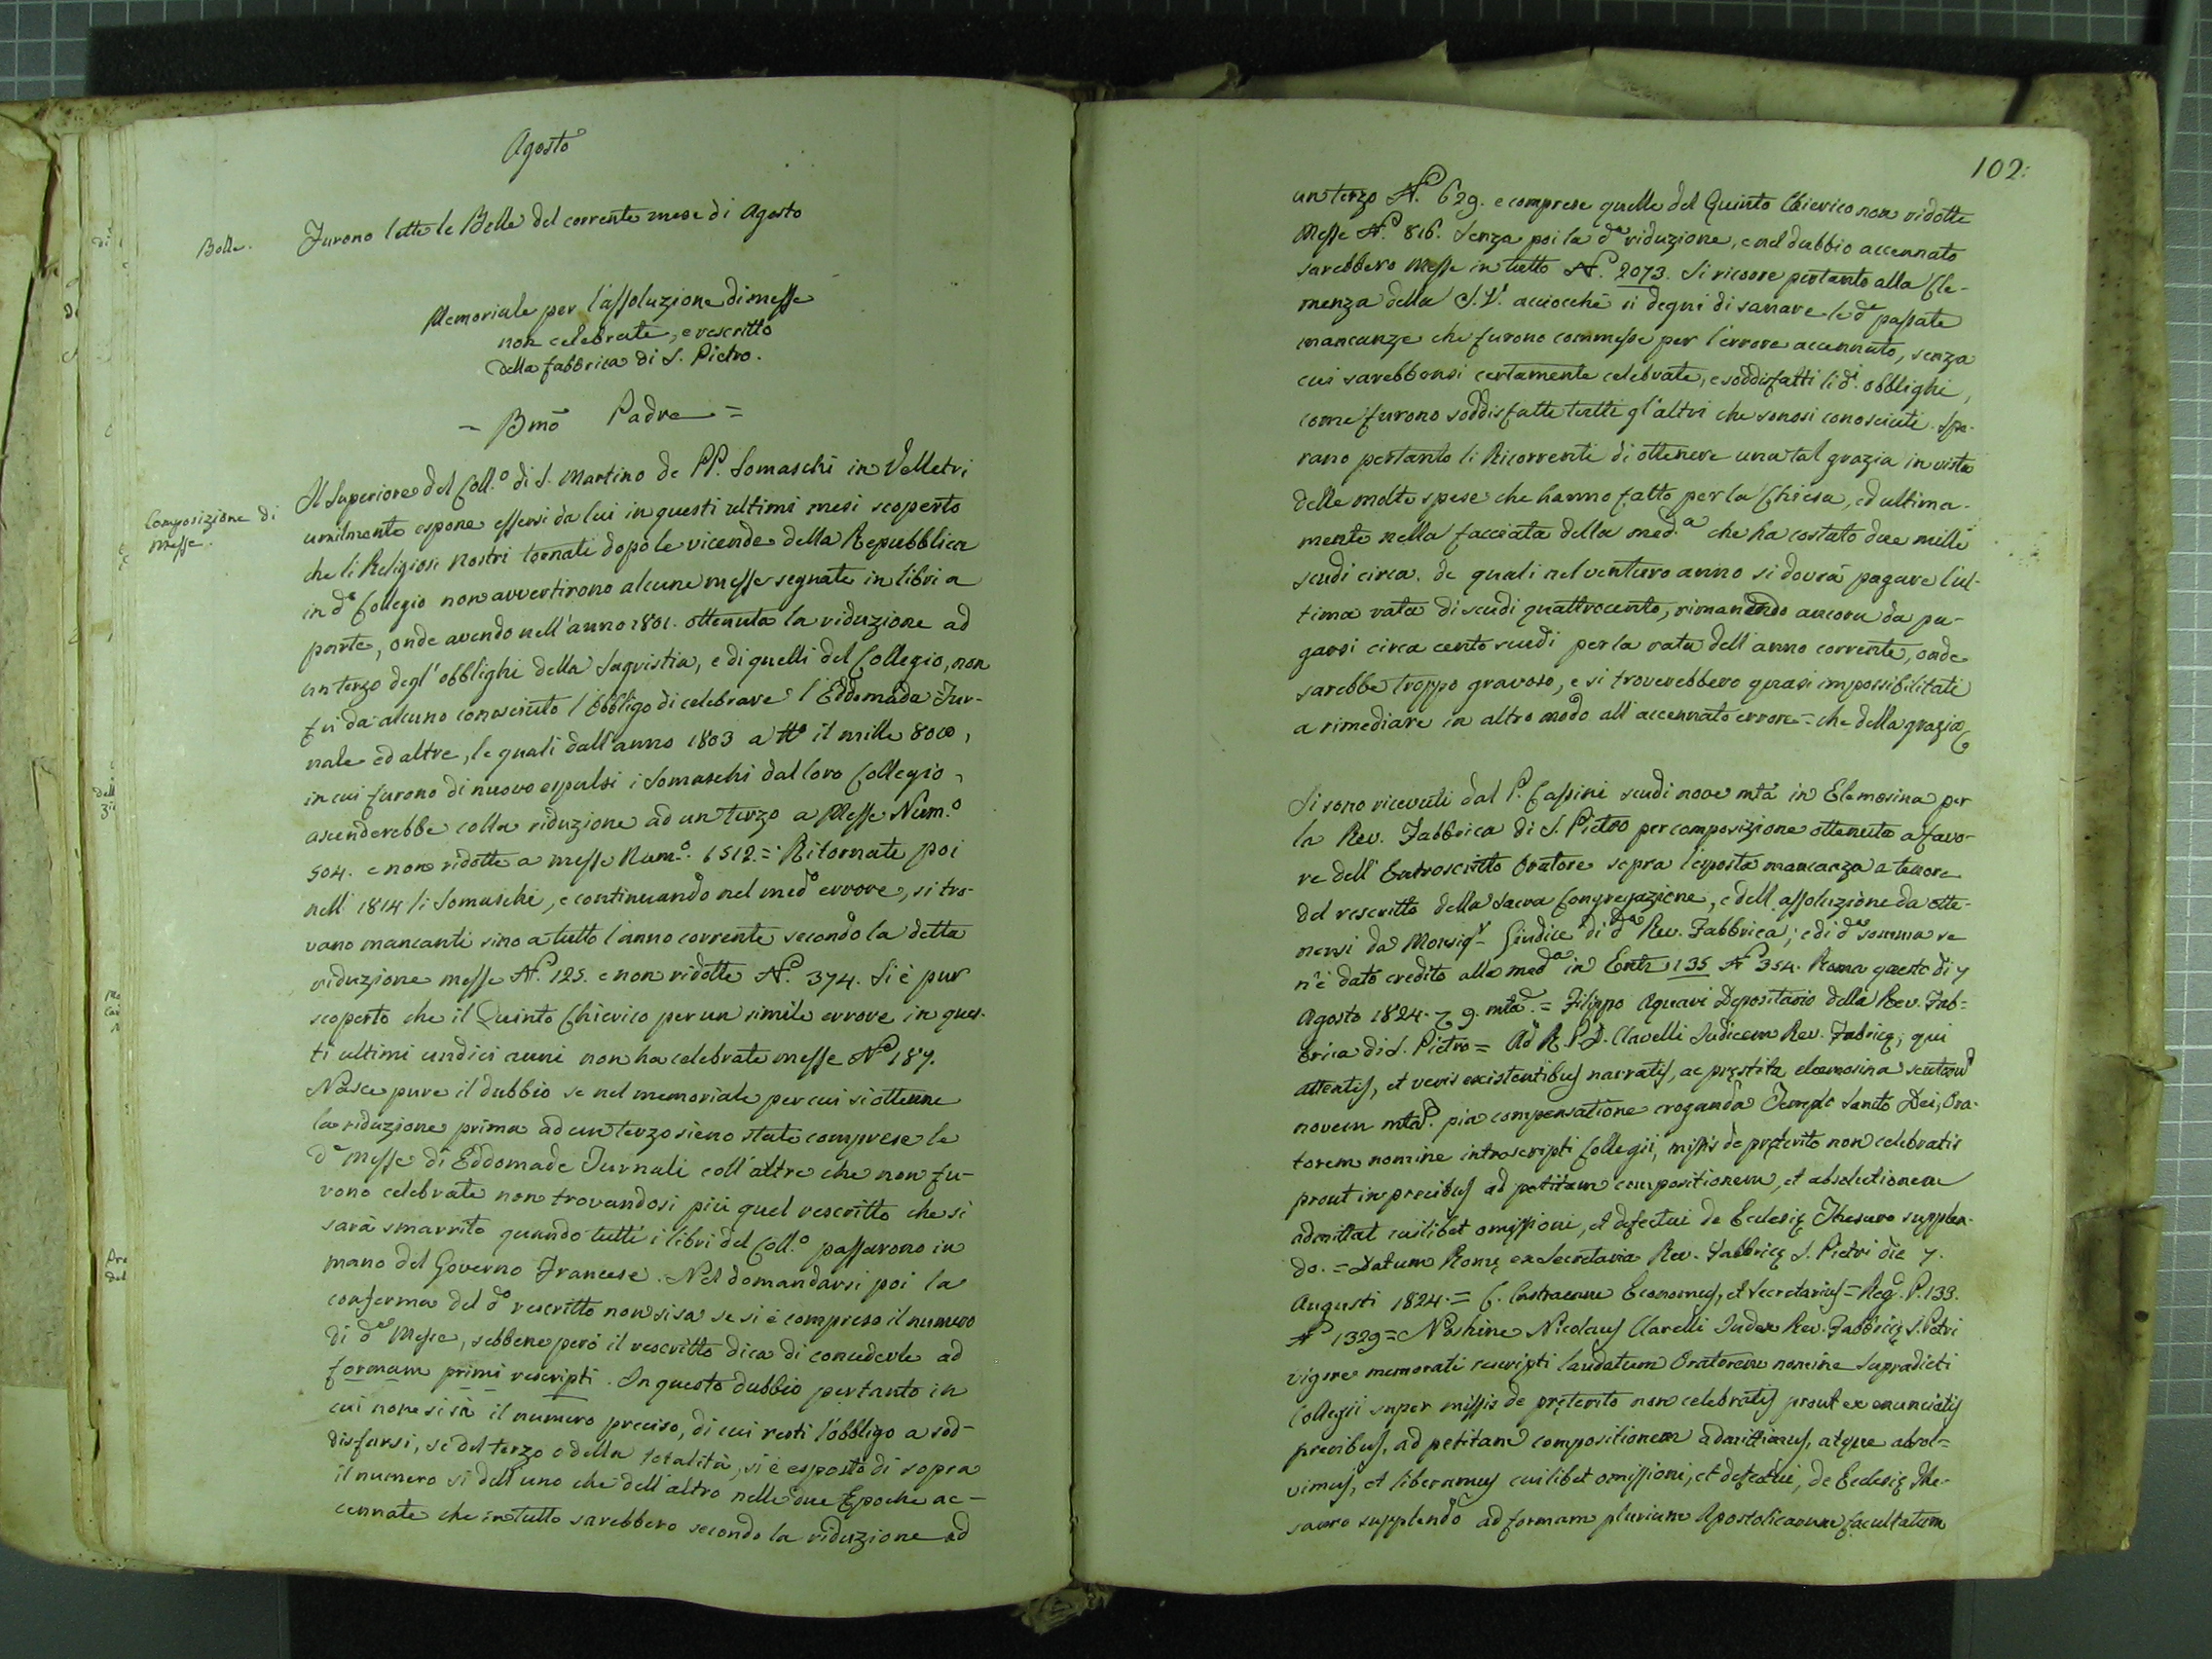 Agosto
Bolle.
Furono lette le Bolle del corrente mese di Agosto
Memoriale per l'assoluzione di messe
non celebrate, e rescritto
della fabbrica di S. Pietro.
= Bmõ Padre =
Composizione di
messe.
Il Superiore del Coll.º di S. Martino de PP. Somaschi in Velletri
umilmente espone essersi da lui in questi ultimi mesi scoperto
che li Religiosi nostri tornati dopo le vicende della Repubblica
in dº Collegio non avvertirono alcune messe segnate in libri a
parte, onde avendo nell'anno 1801. ottenuta la riduzione ad
un terzo degl'obblighi della Sagristia, e di quelli del Collegio, non
fu da alcuno conosciuto l'obbligo di celebrare l'Eddomada Jur-
nale ed altre, le quali dall'anno 1803 a ttº il mille 8010,
in cui furono di nuovo espulsi i Somaschi dal loro Collegio,
ascenderebbe colla riduzione ad un terzo a Messe Num.º
504. e non ridotte a messe Num.º 1512. = Ritornati poi
nell' 1814 li Somaschi, e continuando nel medº errore, si tro-
vano mancanti sino a tutto l'anno corrente secondo la detta
riduzione messe Nº. 125. e non ridotte Nº. 374. Si è pur
scoperto che il Quinto Chierico per un simile errore in ques-
ti ultimi undici anni non ha celebrate messe Nº 187.
Nasce pure il dubbio se nel memoriale per cui si ottenne
la riduzione prima ad un terzo sieno state comprese le
dᵉ Messe di Eddomade Jurnali coll'altre che non fu-
rono celebrate non trovandosi più quel rescritto che si
sarà smarrito quando tutti i libri del Coll.º passarono in
mano del Governo Francese. Nel domandarsi poi la
conferma del dº rescritto non si sa se si è compreso il numero
di dᵉ Messe, sebbene però il rescritto dica di concederle ad
formam primi rescripti. In questo dubbio pertanto in
cui non si sà il numero preciso, di cui resti l'obbligo a sod-
disfarsi, se del terzo o della totalità, si è esposto di sopra
il numero sì dell'uno che dell'altro nelle due Epoche ac-
cennate che in tutto sarebbero secondo la riduzione ad
102.
un terzo Nº. 629. e comprese quelle del Quinto Chierico non ridotte
Messe Nº. 816. Senza poi la dª riduzione, e nel dubbio accennato
sarebbero Messe in tutto Nº. 2073. Si ricorre pertanto alla Cle-
menza della S. V. acciocchè si degni di sanare le dᵉ passate
mancanze che furono commesse per l'errore accennato, senza
cui sarebbonsi certamente celebrate, e soddisfatti li dⁱ. obblighi,
come furono soddisfatti tutti gl'altri che sonosi conosciuti. Spe-
rano pertanto li Ricorrenti di ottenere una tal grazia in vista
delle molte spese che hanno fatto per la Chiesa, ed ultima-
mente nella facciata della med.ª che ha costato due mille
scudi circa. de quali nel venturo anno si dovrà pagare l'ul-
tima rata di scudi quattrocento, rimanendo ancora da pa-
garsi circa cento scudi per la rata dell'anno corrente, onde
sarebbe troppo gravoso, e si troverebbero quasi impossibilitati
a rimediare in altro modo all'accennato errore = che della grazia
Si sono ricevuti dal P. Cassini scudi nove mtà in Elemosina per
la Rev. Fabbrica di S. Pietro per composizione ottenuta a favo-
re dell'Entroscritto Oratore sopra l'esposta mancanza a tenore
del rescritto della Sacra Congregazione, e dell'assoluzione da otte-
nersi da Monsigʳ Giudice di dª Rev. Fabbrica; e di dª somma se
n'è dato credito alla medª in Entr 135 Nº 354. Roma questo dì 7
Agosto 1824. 9. mtà. = Filippo Aquari Depositario della Rev. Fab-
brica di S. Pietro = Ad R. P. D. Clarelli Judicem Rev. Fabricę, qui
attentis, et veris existentibus narratis, ac pręstita elemosina scutorum
novem mtȩ. pia compensatione eroganda Templo Sancto Dei, Ora-
torem nomine introscripti Collegii, missis de pręterito non celebratis
prout in precibus ad petitam compositionem, et absolutionem
admittat cuilibet omissioni, et defectui de Ecclesię Thesauro supplen-
do. = Datum Romę ex Secretaria Rev. Fabbricę S. Pietri die 7.
Augusti 1824. = C. Castracane Economus, et Secretarius = Reg. P. 133.
Nº 1329 = Nos hine Nicolaus Clarelli Judex Rev. Fabbricę S. Petri
vigore memorati rescripti laudatum Oratorem nomine supradicti
Collegii super missis de pręterito non celebratis prout ex enunciatis
precibus, ad petitam compositionem admittimus, atque absol-
vimus, et liberamus cuilibet omissioni, et defectui, de Ecclesię The-
sauro supplendo ad formam plurium Apostolicarum facultatum